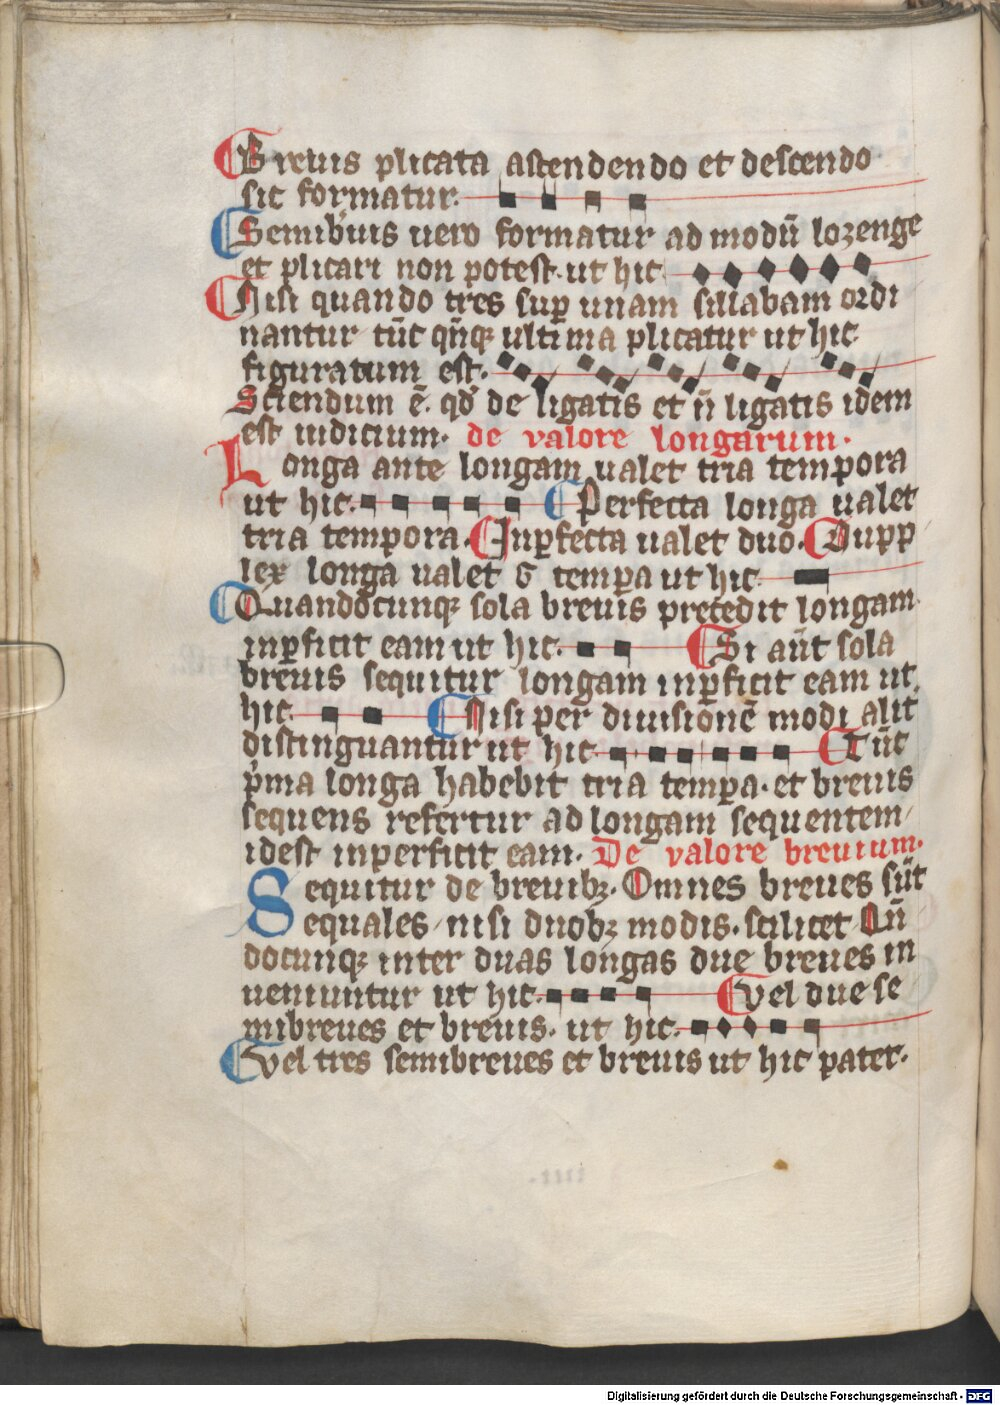 Breuis plicata ascendendo et descendo
sic formatur.
Semibuis uero formatur ad modū lozenge
et plicari non potest. ut hic
Nisi quando tres sup unam sillabam ordi
nantur tūc qn̄q; ultima plicatur ut hic
figuratum est.
Sciendum ē. qd̄ de ligatis et n̄ ligatis idem
est iudicium. de valore longarum.
Longa ante longam ualet tria tempora
ut hic. Perfecta longa ualet
tria tempora. Inꝑfecta ualet duo. Dupp
lex longa ualet 6 tempa ut hic
Quandocunq; sola breuis precedit longam
inꝑficit eam ut hic. Si aūt sola
breuis sequitur longam inꝑficit eam ut
hic. Nisi per diuisionē modi alit
distinguantur ut hic Tūc
pͥma longa habebit tria tempa. et breuis
sequens refertur ad longam sequentem
idest inperficit eam. De valore breuium.
Sequitur de breuibꝫ. Omnes breues sūt
equales nisi duobꝫ modis. scilicet Qn̄
docunq; inter duas longas due breues in
ueniuntur ut hic. vel due se
mibreues et breuis. ut hic.
vel tres semibreues et breuis ut hic pater.
Digitalisierung gefördert durch die Deutsche Forschungsgemeinschaft - DFG